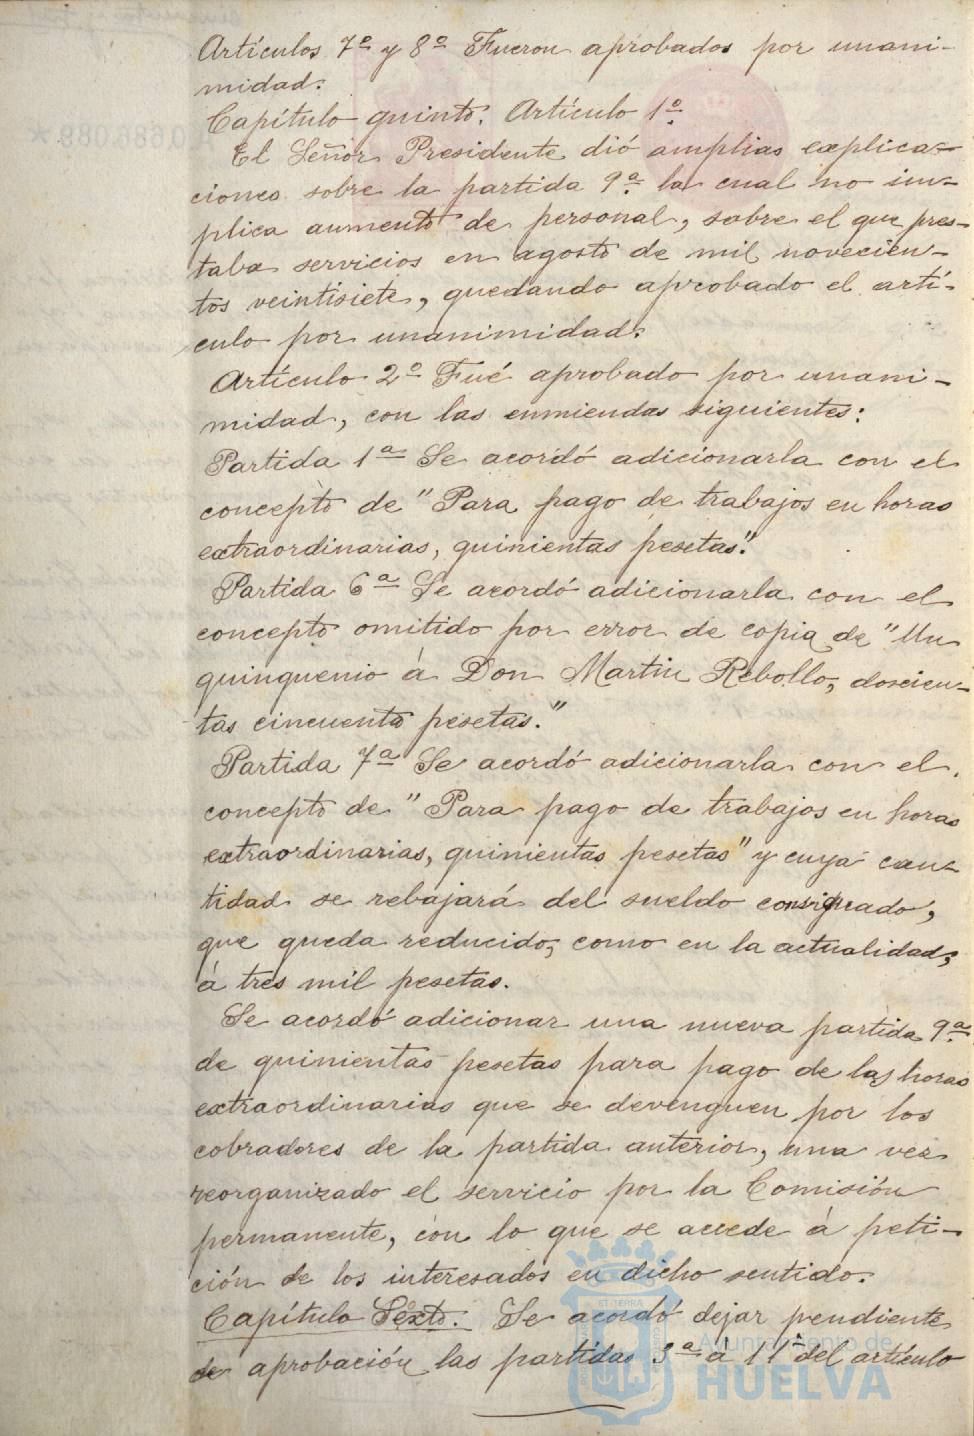 Artículos 7º y 8º Fueron aprobados por unani-
midad.
Capítulo quinto. Artículo 1º
El Señor Presidente dió amplias explica-
ciones sobre la partida 9ª la cual no im-
plica aumento de personal, sobre el que pres-
taba servicios en agosto de mil novecien-
tos veintisiete, quedando aprobado el artí-
culo por unanimidad.
Artículo 2º Fué aprobado por unani-
midad, con las enmiendas siguientes:
Partida 1ª Se acordó adicionarla con el
concepto de "Para pago de trabajos en horas
extraordinarias, quinientas pesetas".
Partida 6ª Se acordó adicionarla con el
concepto omitido por error de copia de "Un
quinquenio á Don Martin Rebollo, doscien-
tas cincuenta pesetas."
Partida 7ª Se acordó adicionarla con el
concepto de "Para pago de trabajos en horas
extraordinarias, quinientas pesetas" y cuya can-
tidad se rebajará del sueldo consignado,
que queda reducido, como en la actualidad,
á tres mil pesetas.
Se acordó adicionar una nueva partida 9ª
de quinientas pesetas para pago de las horas
extraordinarias que se devenguen por los
cobradores de la partida anterior, una vez
reorganizado el servicio por la Comisión
permanente, con lo que se accede á peti-
ción de los interesados en dicho sentido.
Capítulo Sexto. Se acordó dejar pendiente
de aprobación las partidas 3ª á 11ª del artículo
Ayuntamiento de
HUELVA